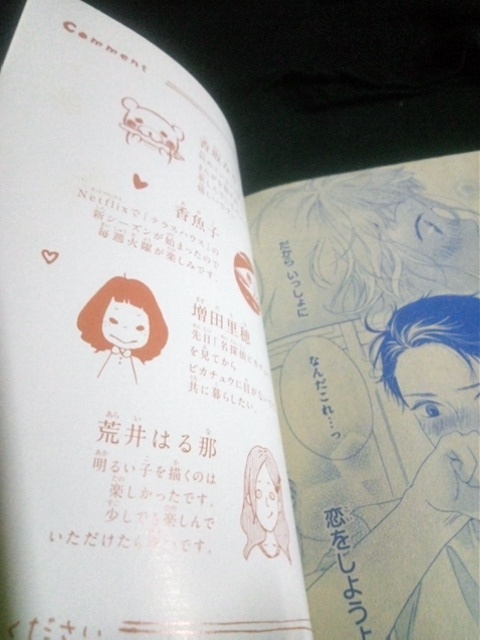 Comment
香魚子
Netflixで「テラスハウス」の
新シーズンが始まったので
毎週火曜が楽しみです。
増田里穂
先日「名探偵ピカチュウ
を見てから
ピカチュウに目がない
共に暮らしたい。
荒井はる那
明るい子を描くのは
楽しかったです。
少しでも楽しんで
いただけたら幸いです。
ください
だから いっしょに
なんだこれ…っ
恋をしようよ